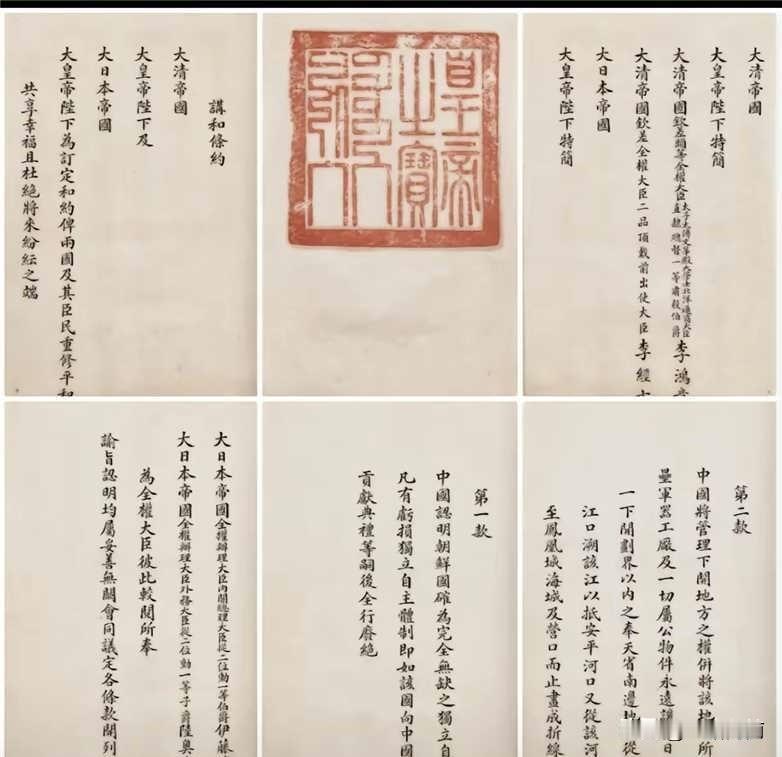 講和條約
大清帝國
大皇帝陛下及
大日本帝國
大皇帝陛下為訂定和約俾兩國及其臣民重修平和
共享幸福且杜絕將來紛紜之端
皇帝
之寶
大清帝國
大皇帝陛下特簡
大清帝國欽差頭等全權大臣太子太傅文華殿大學士北洋通商大臣直隸總督一等肅毅伯爵李鴻章
大清帝國欽差全權大臣二品頂戴前出使大臣李經
大日本帝國
大皇帝陛下特簡
大日本帝國全權辦理大臣內閣總理大臣從二位勳一等伯爵伊藤
大日本帝國全權辦理大臣外務大臣從二位勳一等子爵陸奧
為全權大臣彼此較閱所奉
諭旨認明均屬妥善無闕會同議定各條款開列
第一款
中國認明朝鮮國確為完全無缺之獨立自
凡有虧損獨立自主體制即如該國向中國
貢獻典禮等嗣後全行廢絕
第二款
中國將管理下開地方之權併將該地所
壘軍器工廠及一切屬公物件永遠讓日
一下開劃界以內之奉天省南邊地從
江口溯該江以抵安平河口又從該河
至鳳凰城海城及營口而止畫成折線